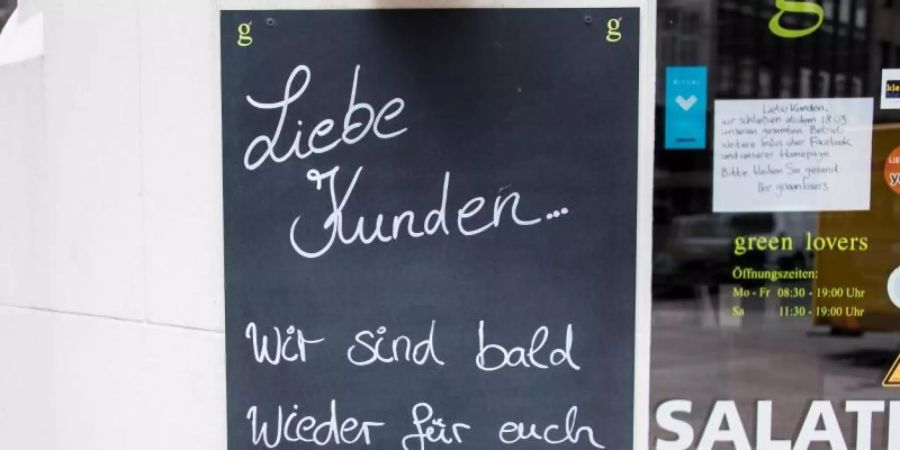 g g
Liebe
Kunden...
Wir sind bald
Wieder für euch
g
Liebe Kunden,
wir schließen ab dem 18.03.
unseren gesamten Betrieb
weitere Infos über Facebook
und unserer Homepage.
Bitte bleiben Sie gesund
Ihr greenlovers
green lovers
Öffnungszeiten:
Mo - Fr 08:30 - 19:00 Uhr
Sa 11:30 - 19:00 Uhr
SALAT